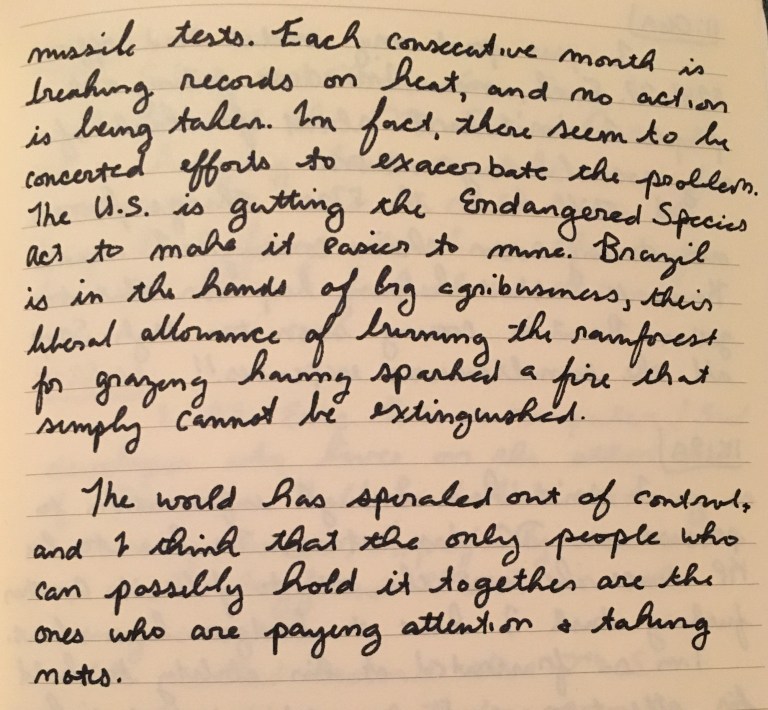 missile tests. Each consecutive month is
breaking records on heat, and no action
is being taken. In fact, there seem to be
concerted efforts to exacerbate the problem.
The U.S. is gutting the Endangered Species
Act to make it easier to mine. Brazil
is in the hands of big agribusiness, their
liberal allowance of burning the rainforest
for grazing having sparked a fire that
simply cannot be extinguished.
The world has spiraled out of control,
and I think that the only people who
can possibly hold it together are the
ones who are paying attention & taking
notes.